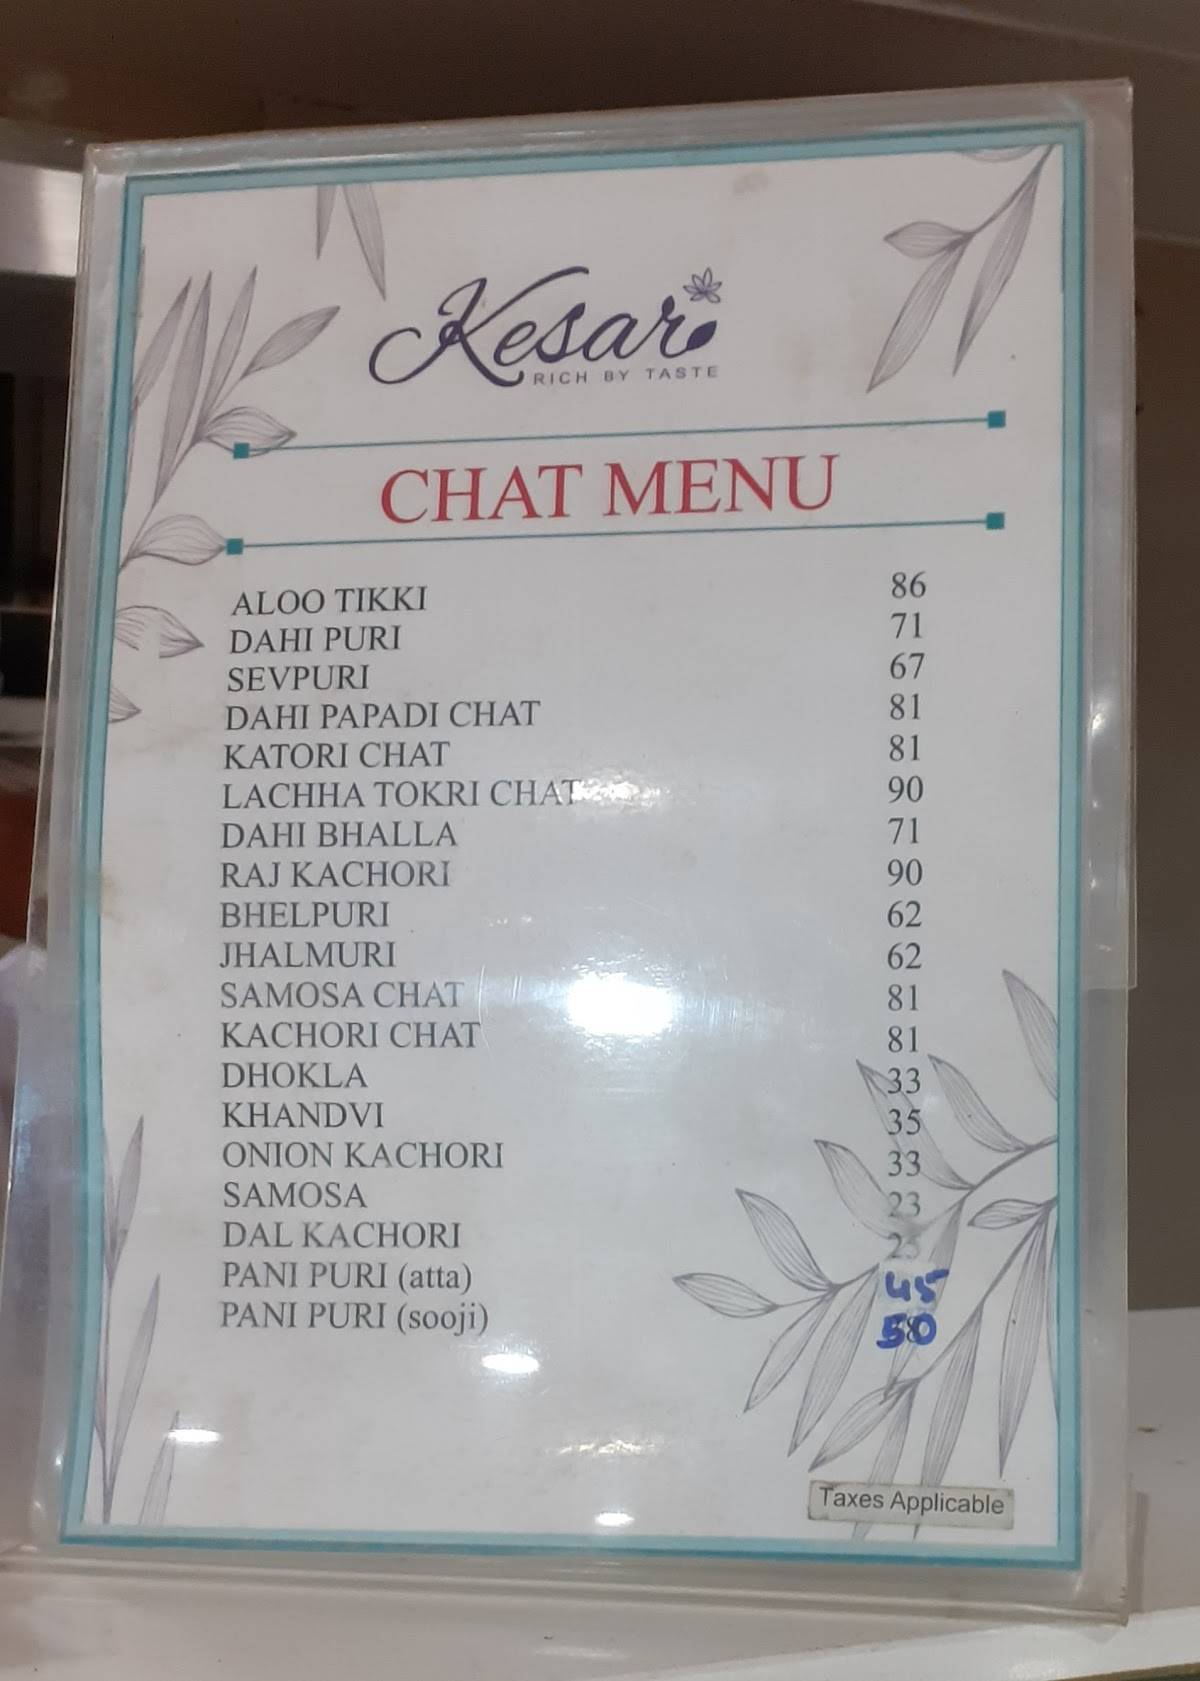 Kesar
RICH BY TASTE
CHAT MENU
ALOO TIKKI 86
DAHI PURI 71
SEVPURI 67
DAHI PAPADI CHAT 81
KATORI CHAT 81
LACHHA TOKRI CHAT 90
DAHI BHALLA 71
RAJ KACHORI 90
BHELPURI 62
JHALMURI 62
SAMOSA CHAT 81
KACHORI CHAT 81
DHOKLA 33
KHANDVI 35
ONION KACHORI 33
SAMOSA 23
DAL KACHORI
PANI PURI (atta) 45
PANI PURI (sooji) 50
Taxes Applicable